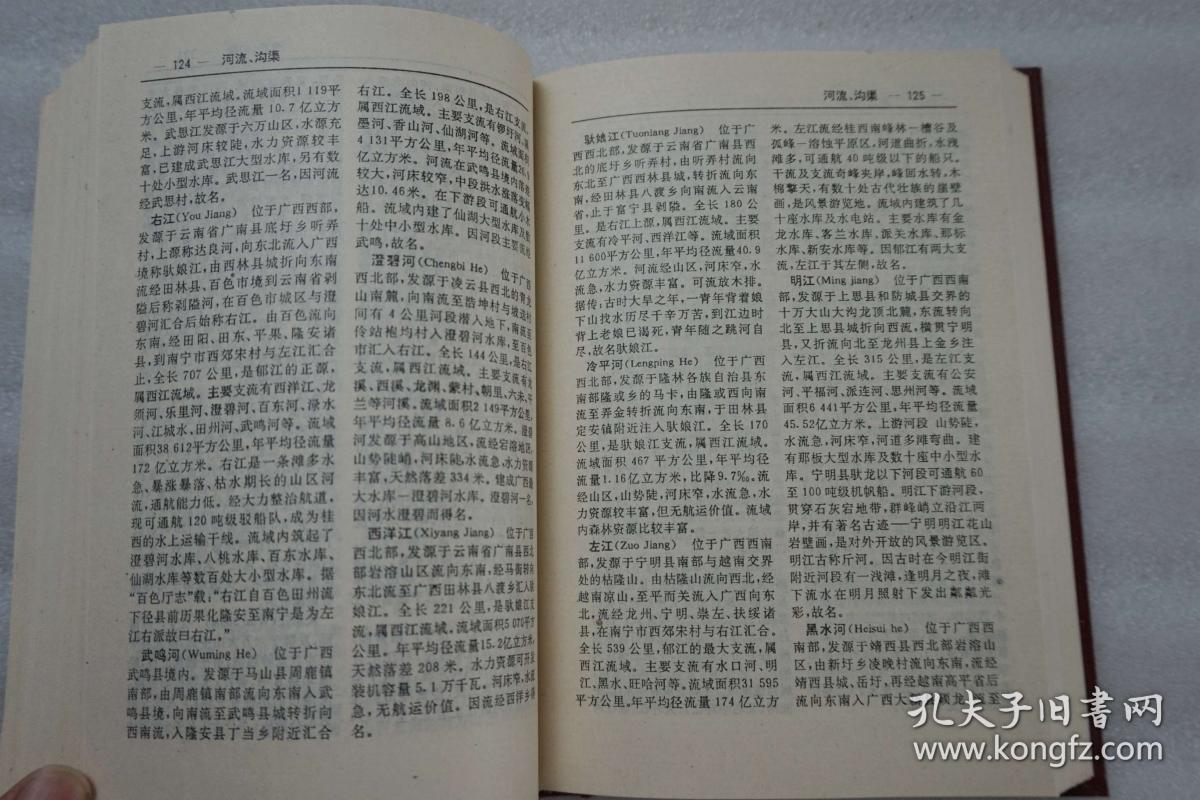 — 124 — 河流、沟渠
支流,属西江流域。流域面积1 119平
方公里,年平均径流量 10.7 亿立方
米。武思江发源于六万山区,水源充
足,上游河床较陡,水力资源较丰
富,已建成武思江大型水库,另有数
十处小型水库。武思江一名,因河流
经武思村,故名。
右江(You Jiang) 位于广西西部,
发源于云南省广南县底圩乡听弄
村,上源称达良河,向东北流入广西
境称驮娘江,由西林县城折向东南
流经田林县、百色市境到云南省剥
隘后称剥隘河,在百色市城区与澄
碧河汇合后始称右江。由百色流向
东南,经田阳、田东、平果、隆安诸
县,到南宁市西郊宋村与左江汇合
止,全长 707 公里,是郁江的正源,
属西江流域。主要支流有西洋江、龙
须河、乐里河、澄碧河、百东河、渌水
河、江城水、田州河、武鸣河等。流域
面积38 612平方公里,年平均径流量
172 亿立方米。右江是一条滩多水
急、暴涨暴落、枯水期长的山区河
流,通航能力低。经大力整治航道,
现可通航 120 吨级驳船队,成为桂
西的水上运输干线。流域内筑起了
澄碧河水库、八桃水库、百东水库、
仙湖水库等数百处大小型水库。据
“百色厅志”载:“右江自百色田州流
下径县前历果化隆安至南宁是为左
江右派故曰右江。”
武鸣河(Wuming He) 位于广西
武鸣县境内。发源于马山县周鹿镇
南部,由周鹿镇南部流向东南入武
鸣县境,向南流至武鸣县城转折向
西南流,入隆安县丁当乡附近汇合
右江。全长 198 公里,是右江支流,
属西江流域。主要支流有锣圩河、
墨河、香山河、仙湖河等。流域面积
4 131平方公里,年平均径流量
亿立方米。河流在武鸣县境内落差
较大,河床较窄,中段洪水涨落变幅
达10.46米。在下游段可通航小木
船。流域内建了仙湖大型水库及数
十处中小型水库。因河段主要流经
武鸣,故名。
澄碧河(Chengbi He) 位于广西
西北部,发源于凌云县西北的青龙
山南麓,向南流至浩坤村与坡送村
间有 4 公里河段潜入地下,南流至
伶站袍均村入澄碧河水库,至百色
市汇入右江。全长 144 公里,是右江
支流,属西江流域。主要支流有龙
溪、西溪、龙渊、蒙村、朝里、六未、平
兰等河溪。流域面积2 149平方公里,
年平均径流量 8.6 亿立方米。澄碧
河发源于高山地区,流经岩溶地区,
山势陡峭,河床陡,水流急,水力资源
丰富,天然落差 334 米。建成广西最
大水库—澄碧河水库。澄碧河一名,
因河水澄碧而得名。
西洋江(Xiyang Jiang) 位于广西
西北部,发源于云南省广南县西北
部岩溶山区流向东南,经马街转向
东北流至广西田林县八渡乡汇入驮
娘江。全长 221 公里,是驮娘江支
流,属西江流域。流域面积5 070平方
公里。年平均径流量15.2亿立方米,
天然落差 208 米。水力资源可开发
装机容量 5.1 万千瓦。河床窄,水流
急,无航运价值。因流经西洋乡得
名。
河流、沟渠 — 125 —
驮娘江(Tuoniang Jiang) 位于广
西西北部,发源于云南省广南县西
北的底圩乡听弄村,由听弄村流向
东北至广西西林县城,转折流向东
南,经田林县八渡乡向南流入云南
省,止于富宁县剥隘。全长 180 公
里。是右江上源,属西江流域。主要
支流有冷平河、西洋江等。流域面积
11 600平方公里,年平均径流量40.9
亿立方米。河流经山区,河床窄,水
流急,水力资源丰富。可流放木排。
据传:古时大旱之年,一青年背着娘
下山找水历尽千辛万苦,到江边时
背上老娘已渴死,青年随之跳河自
尽,故名驮娘江。
冷平河(Lengping He) 位于广西
西北部,发源于隆林各族自治县东
南部隆或乡的马卡,由隆或西向南
流至弄金转折流向东南,于田林县
定安镇附近注入驮娘江。全长 170
公里,是驮娘江支流,属西江流域。
流域面积 467 平方公里,年平均径
流量1.16亿立方米,比降9.7‰。流
经山区,山势陡,河床窄,水流急,水
力资源较丰富,但无航运价值。流域
内森林资源比较丰富。
左江(Zuo Jiang) 位于广西西南
部,发源于宁明县南部与越南交界
处的枯隆山。由枯隆山流向西北,经
越南凉山,至平而关流入广西向东
北,流经龙州、宁明、崇左、扶绥诸
县,在南宁市西郊宋村与右江汇合。
全长 539 公里,郁江的最大支流,属
西江流域。主要支流有水口河、明
江、黑水、旺哈河等。流域面积31 595
平方公里。年平均径流量 174 亿立方
米。左江流经桂西南峰林—槽谷及
孤峰—溶蚀平原区,河道曲折,水浅
滩多,可通航 40 吨级以下的船只。
干流及支流奇峰夹岸,峰回水转,木
棉擎天,有数十处古代壮族的崖壁
画,是风景游览地。流域内建筑了几
十座水库及水电站。主要水库有金
龙水库、客兰水库、派关水库、那标
水库、新安水库等。因郁江有两大支
流,左江于其左侧,故名。
明江(Ming jiang) 位于广西西南
部,发源于上思县和防城县交界的
十万大山大沟龙顶北麓,东流转向
北至上思县城折向西流,横贯宁明
县,又折流向北至龙州县上金乡注
入左江。全长 315 公里,是左江支
流,属西江流域。主要支流有公安
河、平福河、派连河、思州河等。流域
面积6 441平方公里,年平均径流量
45.52亿立方米。上游河段 山势陡,
水流急,河床窄,河道多滩弯曲。建
有那板大型水库及数十座中小型水
库。宁明县驮龙以下河段可通航 60
至 100吨级机帆船。明江下游河段,
贯穿石灰岩地带,群峰峭立沿江两
岸,并有著名古迹——宁明明江花山
岩壁画,是对外开放的风景游览区。
明江古称斤河。因古时在今明江街
附近河段有一浅滩,逢明月之夜,滩
下流水在明月照射下发出粼粼光
彩,故名。
黑水河(Heisui he) 位于广西西
南部,发源于靖西县西北部岩溶山
区,由新圩乡凌晚村流向东南,流经
靖西县城、岳圩,再经越南高平省后
流向东南入广西大
孔夫子旧书网
www.kongfz.com